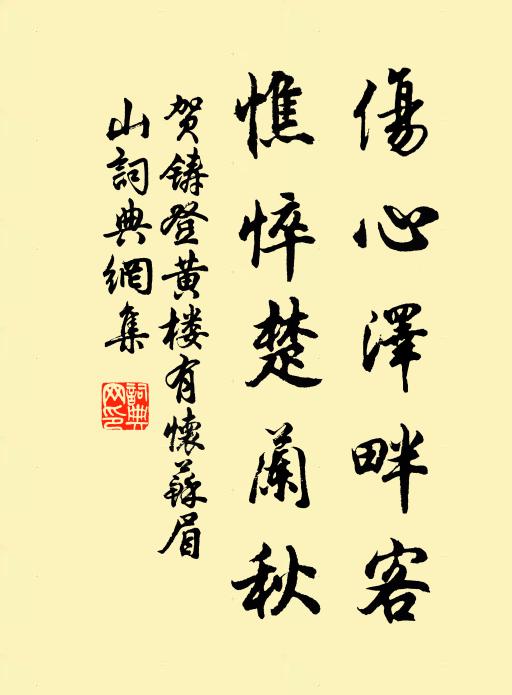 傷心澤畔客
憔悴楚蘭秋
贺鑄登黄楼有懷蘇眉
山詞典網集
詞典
网印